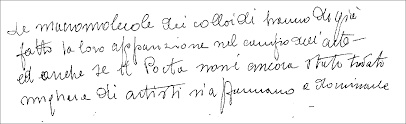 Le macromolecole dei colloidi hanno di già
fatto la loro apparizione nel campo dell'arte
ed anche se il Poeta non è ancora stato trovato
migliaia di artisti si affannano a dominarle